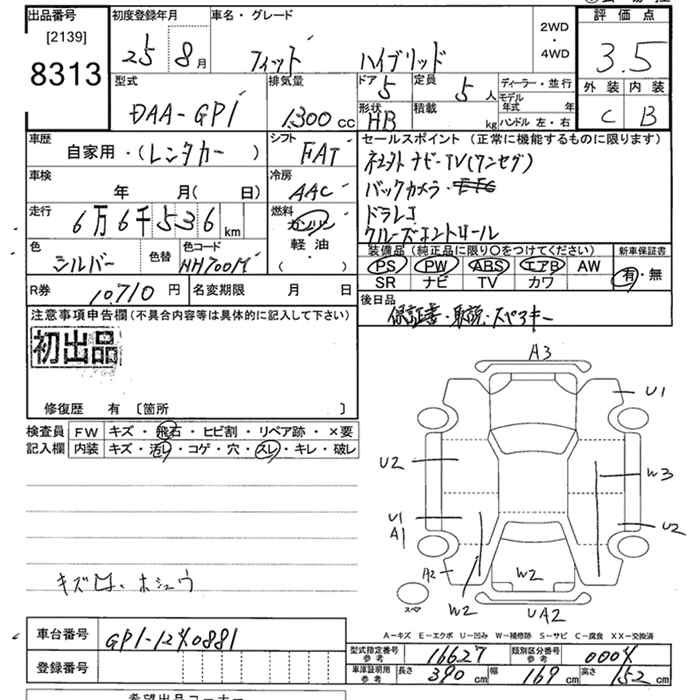 出品番号 初度登録年月 車名・グレード 2WD・4WD 評価点
[2139]
8313 25 8月 フィット ハイブリッド 3.5
型式 排気量 ドア 5 定員 5人 ディーラー・並行 外装 内装
モデル年式 年
DAA-GP1 1300cc 形状 HB 積載 kg ハンドル 左・右 C B
車歴 シフト セールスポイント (正常に機能するものに限ります)
自家用・(レンタカー) FAT
車検 冷房 ナビ・TV(ワンセグ)
年 月(日) AAC バックカメラ・
走行 6万6千536km 燃料 ガソリン ドラレコ
軽油 クルーズコントロール
( )
色 シルバー 色替 色コード NH700M 装備品 (純正品に限り○をつけてください) 新車保証書
PS PW ABS エアB AW 有・無
SR ナビ TV カワ
R券 10,710円 名変期限 月 日 後日品
注意事項申告欄(不具合内容等は具体的に記入して下さい) 保証書・取説・スペアキー
初出品
修復歴 有 〔箇所 〕
検査員 FW キズ・飛石・ヒビ割・リペア跡・×要
記入欄 内装 キズ・汚レ・コゲ・穴・スレ・キレ・破レ
A3
U1
U2
W3
U1
A1
U2
A2
W2
W2
UA2
スペア
キズ 凹、ホシュウ
A-キズ E-エクボ U-凹み W-補修跡 S-サビ C-腐食 XX-交換済
車台番号 GP1-1240881
型式指定番号 参考 16627 類別区分番号 参考 0004
登録番号 車庫証明用 参考 長さ 390cm 幅 169cm 高さ 152cm
希望出品コーナー